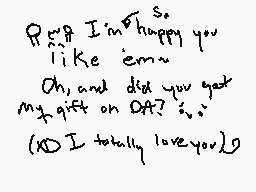 I'm so happy you
like 'em~
Oh, and did you get
my gift on DA?
(XD I totally love you)